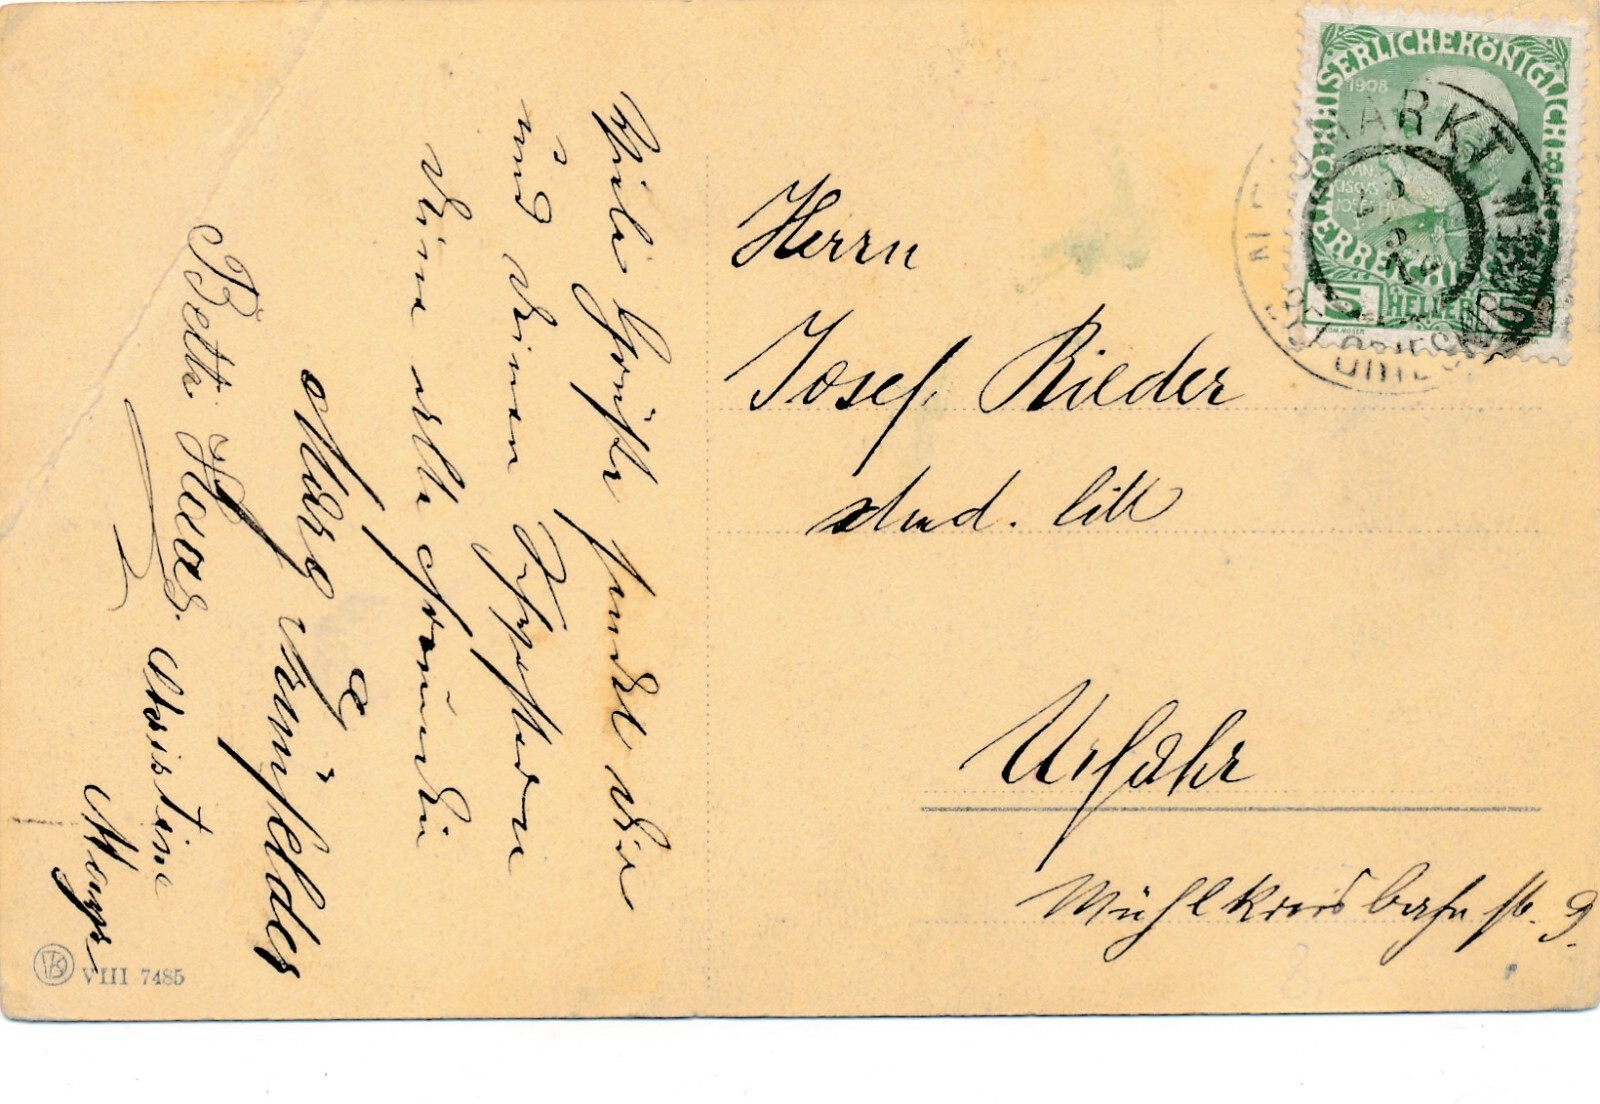 Viele Grüße sendet dir
und deinen Schwestern
deine alte Freundin
Marg Traunfelder
Betti Haas. Christine
Mayr
Herrn
Josef Rieder
stud. litt
Urfahr
Mühlkreisbahnstr. 9.
KAISERLICHE KÖNIGLICHE
ÖSTERREICHISCHE
1908
5 HELLER 5
MARKT
VIII 7485